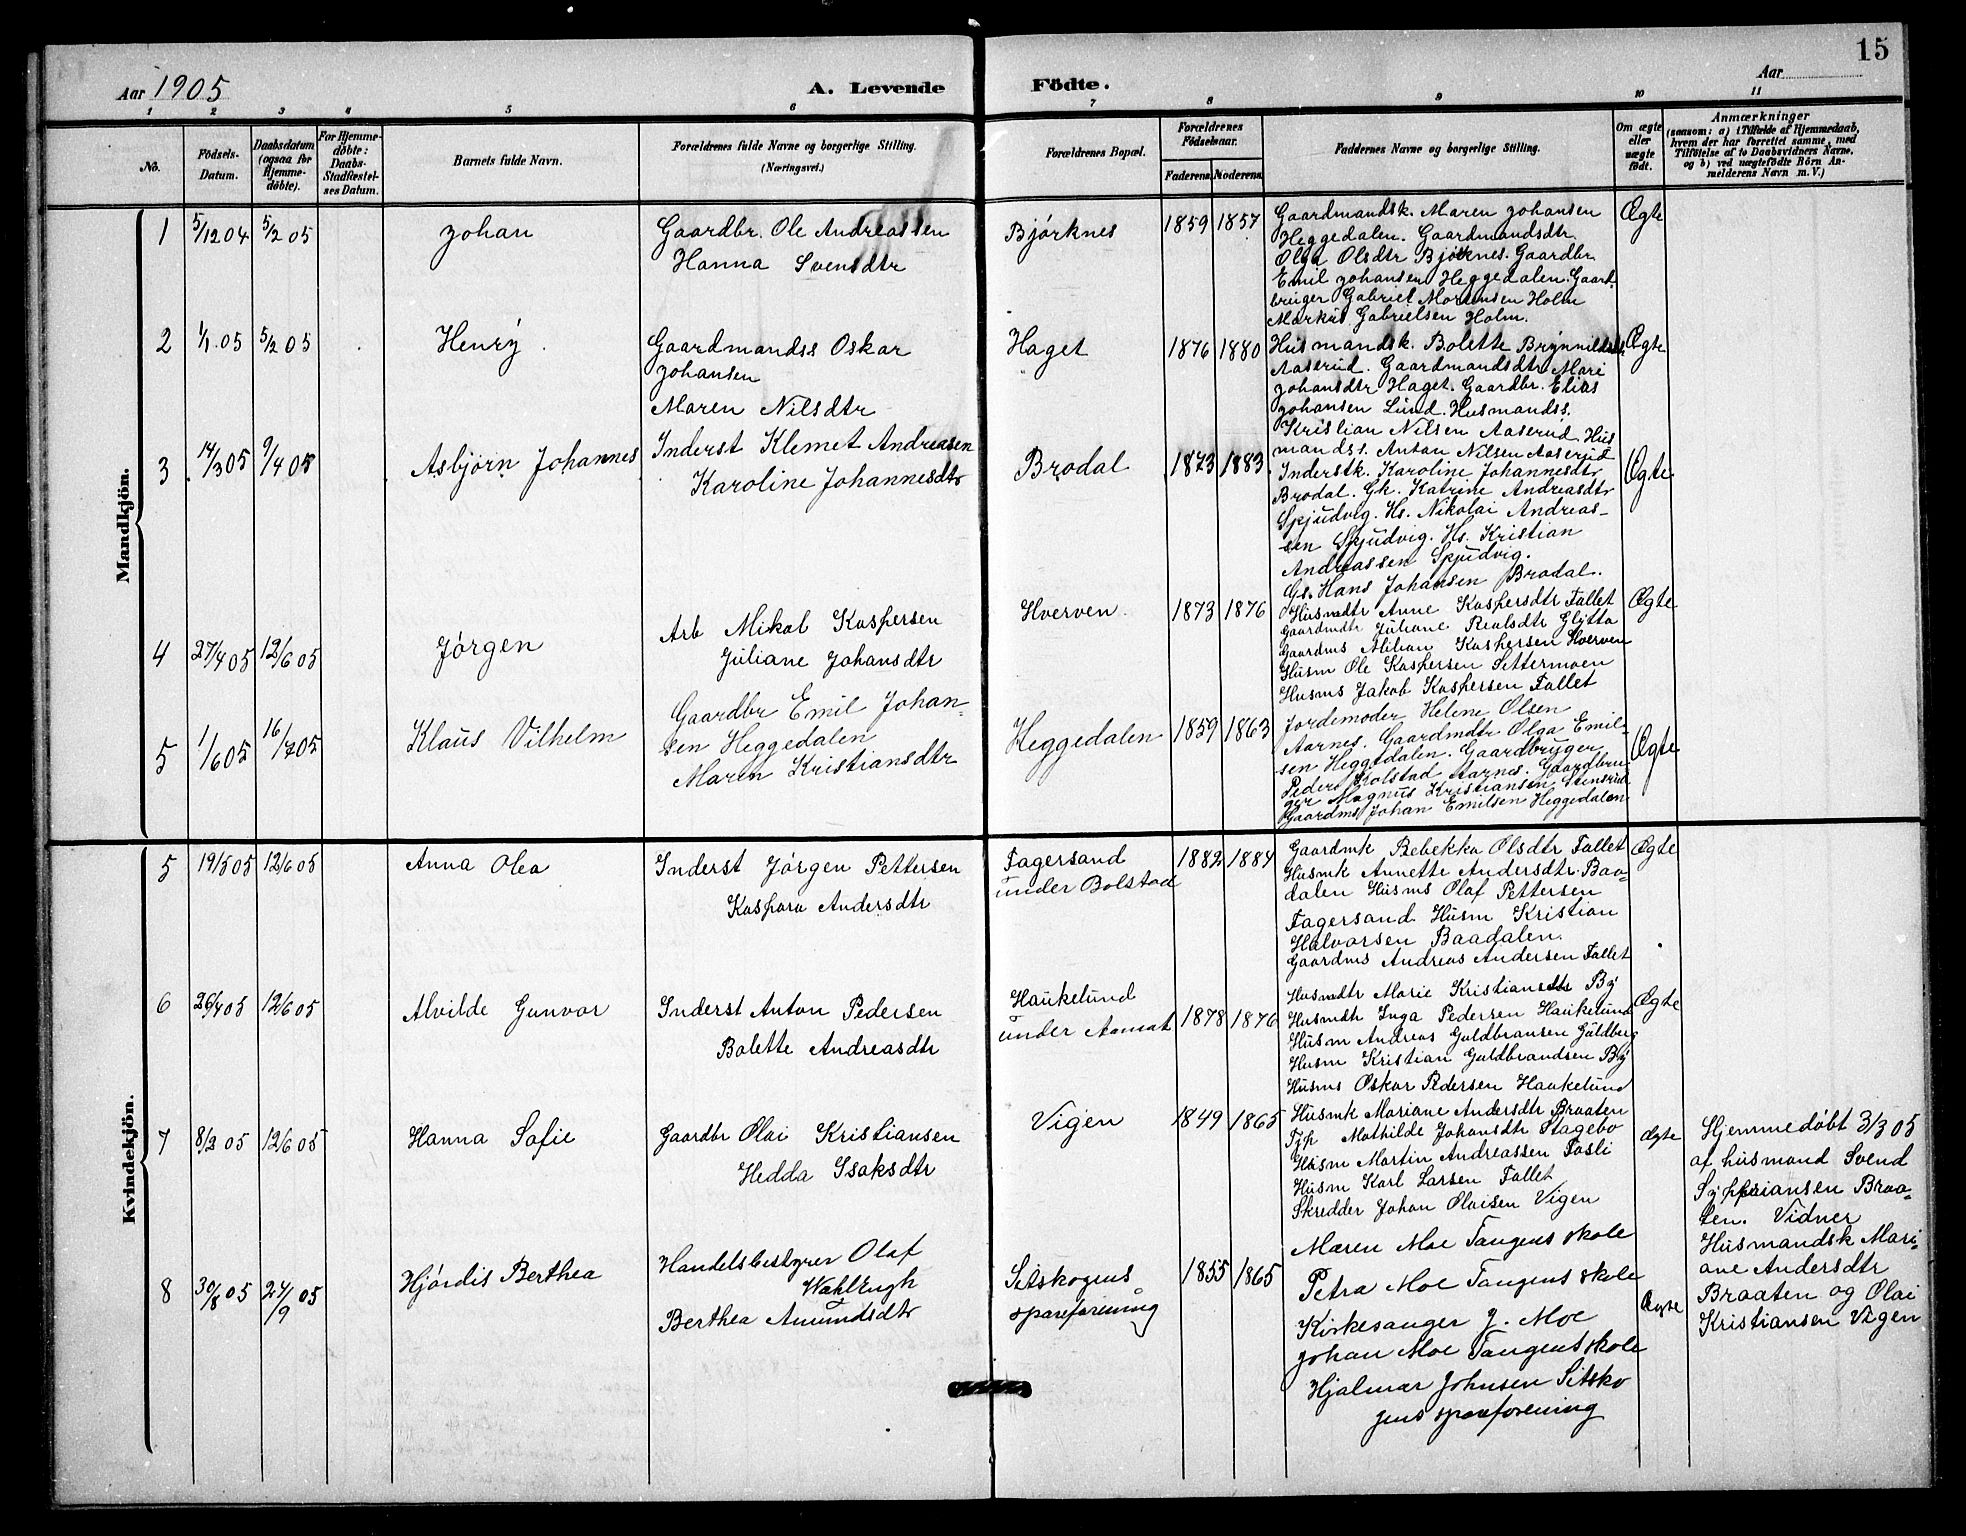 15
Aar 1905
A. Levende
Födte.
Aar
1 2 3 4 5 6 7 8 9 10 11
No.
Födsels-
Datum.
Daabsdatum
(ogsaa for
Hjemme-
döbte).
For Hjemme-
döbte:
Daabs-
Stadfæstel-
ses Datum.
Barnets fulde Navn.
Forældrenes fulde Navne og borgerlige Stilling.
(Næringsvei.)
Forældrenes Bopæl.
Forældrenes
Födselsaar.
Faderens.
Moderens.
Faddernes Navne og borgerlige Stilling.
Om ægte
eller
uægte
födt.
Anmærkninger
(saasom: a) i Tilfælde af Hjemmedaab,
hvem der har forrettet samme, med
Tilföielse af to Daabsvidners Navne,
og b) ved uægtefödte Börn An-
melderens Navn m. V.)
Mandkjön.
1
5/12 04
5/2 05
Johan
Gaardbr. Ole Andreassen
Hanna Svensdtr
Bjørknes
1859
1857
Gaardmandsk. Maren Johansen
Heggedalen. Gaardmandsdtr
Olga Olsdtr Bjørknes. Gaardbr
Emil Johansen Heggedalen. Gaard
bruger Gabriel Mortensen Holm
Markus Gabrielsen Holm.
Ægte
2
1/1 05
5/2 05
Henry
Gaardmandss Oskar
Johansen
Maren Nilsdtr
Haget
1876
1880
Husmandsk. Bolette
Aaserud. Gaardmandsdtr Mari
Johansdtr Haget. Gaardbr. Elias
Johansen Lund. Husmandss.
Kristian Nilsen Aaserud. Hus
mandss. Anton Nilsen Aaserud
Ægte
3
14/3 05
9/4 05
Asbjørn Johannes
Inderst Klemet Andreasen
Karoline Johannesdtr
Brodal
1873
1883
Inderstk. Karoline Johannesdtr
Brodal. Gk. Katrine Andreasdtr
Spjudvig. Hs. Nikolai Andreas-
sen Spjudvig. Hs. Kristian
Andreassen Spjudvig.
Gs. Hans Johansen Brodal.
Ægte
4
27/4 05
12/6 05
Jørgen
Arb Mikal Kaspersen
Juliane Johansdtr
Hverven
1873
1876
Husmdtr Anne Kaspersdtr Fallet
Gaardmdtr Juliane
Gaardms Milian Kaspersen Hverven
Husm Ole Kaspersen Settermoen
Husms Jakob Kaspersen Fallet
Ægte
5
1/6 05
16/7 05
Klaus Vilhelm
Gaardbr Emil Johan-
sen Heggedalen
Maren Kristiansdtr
Heggedalen
1859
1863
Jordemoder Helene Olsen
Aarnes. Gaardmdtr Olga Emil-
sen Heggedalen. Gaardbruger
Peder Kolstad Aarnes. Gaardbru
ger Magnus Kristiansen Stensrud
Gaardms Johan Emilsen Heggedalen
Ægte
Kvindekjön.
5
19/5 05
12/6 05
Anna Olea
Inderst Jørgen Pettersen
Kaspara Andersdtr
Fagersand
under Bolstad
1882
1884
Gaardmk Bebekka Olsdtr Fallet
Husmk Annette Andersdtr Baa-
dalen Husms Olaf Pettersen
Fagersand Husm Kristian
Halvorsen Baadalen.
Gaardms Andreas Andersen Fallet
Ægte
6
26/4 05
12/6 05
Alvilde Gunvor
Inderst Anton Pedersen
Bolette Andreasdtr
Haukelund
under Aamot
1878
1876
Husmdtr Marie Kristiansdtr By
Husmdtr Inga Pedersen Haukelund
Husm Andreas Guldbransen Guldberg
Husm Kristian Guldbrandsen By
Husms Oskar Pedersen Haukelund
Ægte
7
8/2 05
12/6 05
Hanna Sofie
Gaardbr Olai Kristiansen
Hedda Isaksdtr
Vigen
1849
1865
Husmk Mariane Andersdtr Braaten
Tjp Mathilde Johansdtr Stagebo
Husm Martin Andreassen Fosli
Husm Karl Larsen Fallet
Skredder Johan Olaisen Vigen
Ægte
Hjemmedøbt 3/3 05
af husmand Svend
Syppriansen Braa-
ten. Vidner
Husmandsk Mari-
ane Andersdtr
Braaten og Olai
Kristiansen Vigen
8
30/8 05
24/9 05
Hjørdis Berthea
Handelsbestyrer Olaf
Wahl Engh
Berthea Amundsdtr
Sitskogens
spareforening
1855
1865
Maren Moe Tangens skole
Petra Moe Tangens skole
Kirkesanger J. Moe
Johan Moe Tangens skole
Hjalmar Johnsen Sitsko
gens spareforening
Ægte